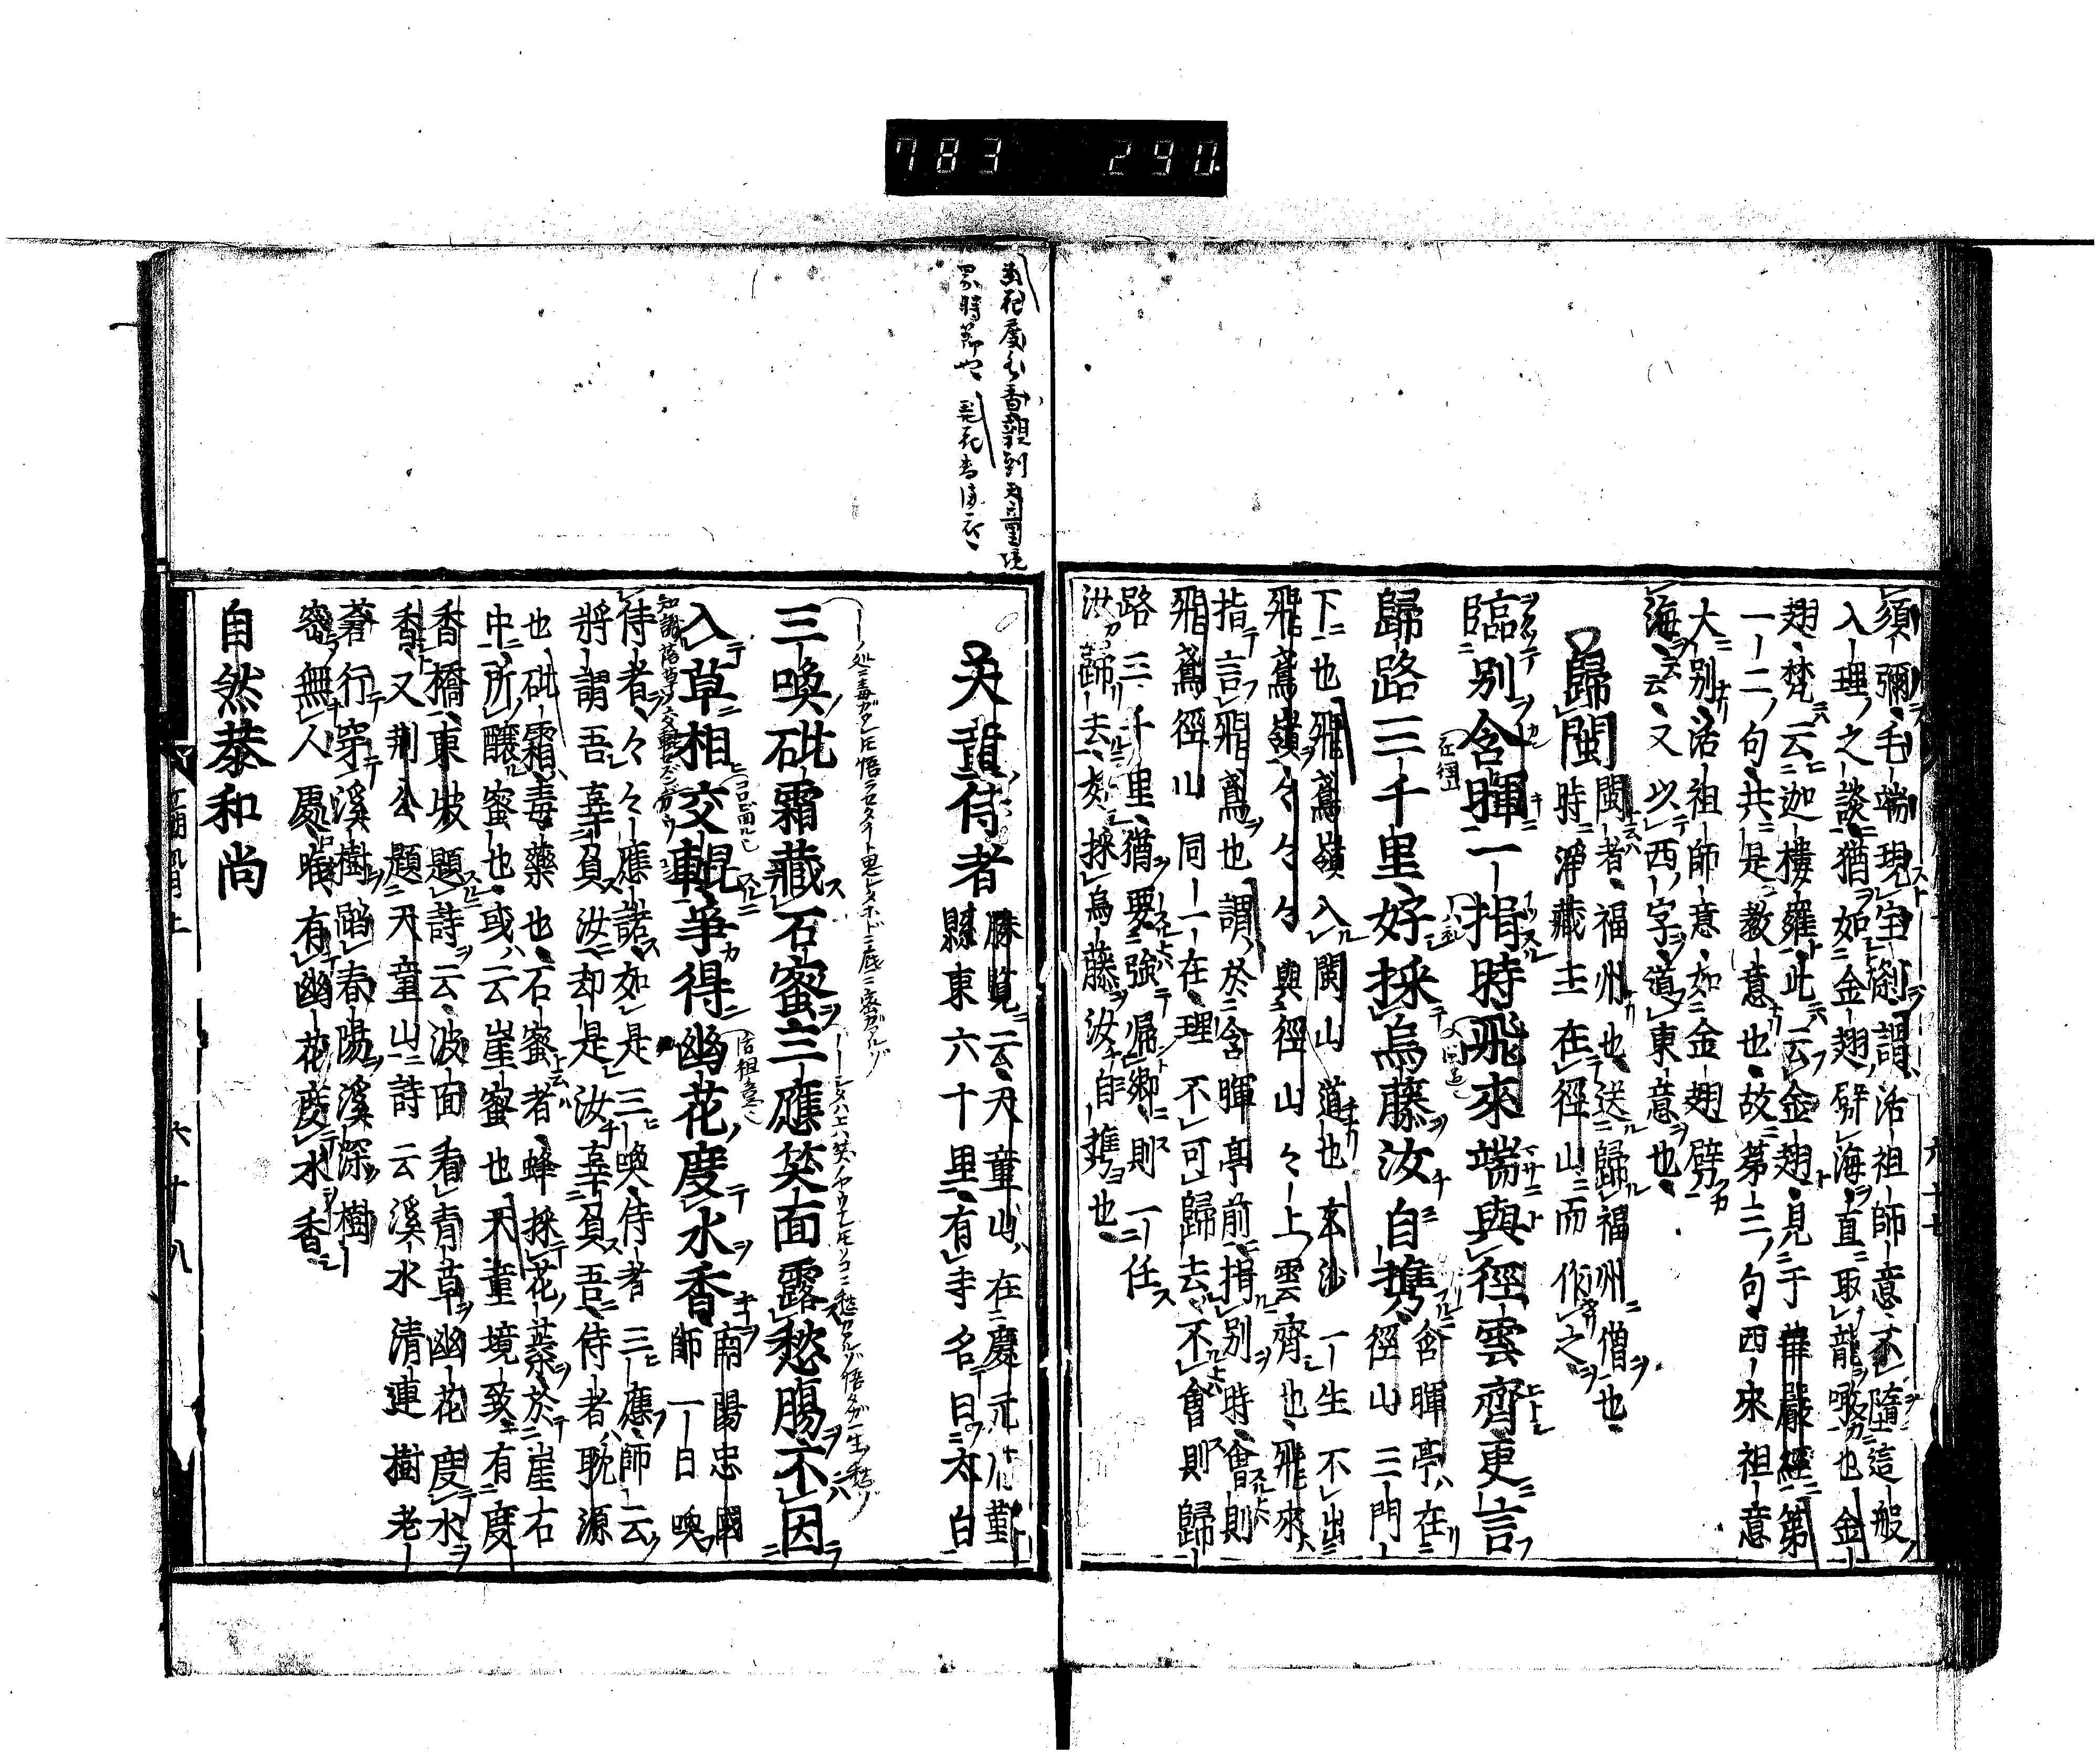 783 290
須彌毛端現宝刹謂活祖師意不墮這一般
入理之談猶如金翅劈海直取龍噉也金
翅梵云迦樓羅此云金翅見于華嚴經第
一二句共是教意也故第三句西來祖意
大別活祖師意如金翅劈
海云云又以西字道東意也
歸閩
閩者福州也送歸福州僧也
時淨藏主在徑山而作之
臨別含暉一捐時飛來端與徑雲齊更言
歸路三千里好採烏藤汝自携
含暉亭在
徑山三門
下也飛鳶嶺入閩山道也玄沙一生不出
飛鳶嶺々々々與徑山々上雲齊也飛來
指言飛鳶也謂於含暉亭前捐別時會則
飛鳶徑山同一在理不可歸去不會則歸
路三千里猶要強帰郷則一任
汝歸去好採烏藤汝自携也
天童侍者
勝覧云天童山在慶元府鄞
縣東六十里有寺名曰太白
三喚砒霜藏石蜜三應笑面露愁腸不因
入草相交輥爭得幽花度水香
南陽忠國
師一日喚
侍者々々應諾如是三喚侍者三應師云
將謂吾辜負汝却是汝辜負吾侍者耽源
也砒霜毒藥也石蜜者蜂採花蘂於崖石
中所釀蜜也或云崖蜜也天童境致有度
香橋東坡題詩云波面看青草幽花度水
香又荊公題天童山詩云溪水清連樹老
蒼行穿溪樹踏春陽溪深樹
密無人處唯有幽花度水香
自然恭和尚
六十八